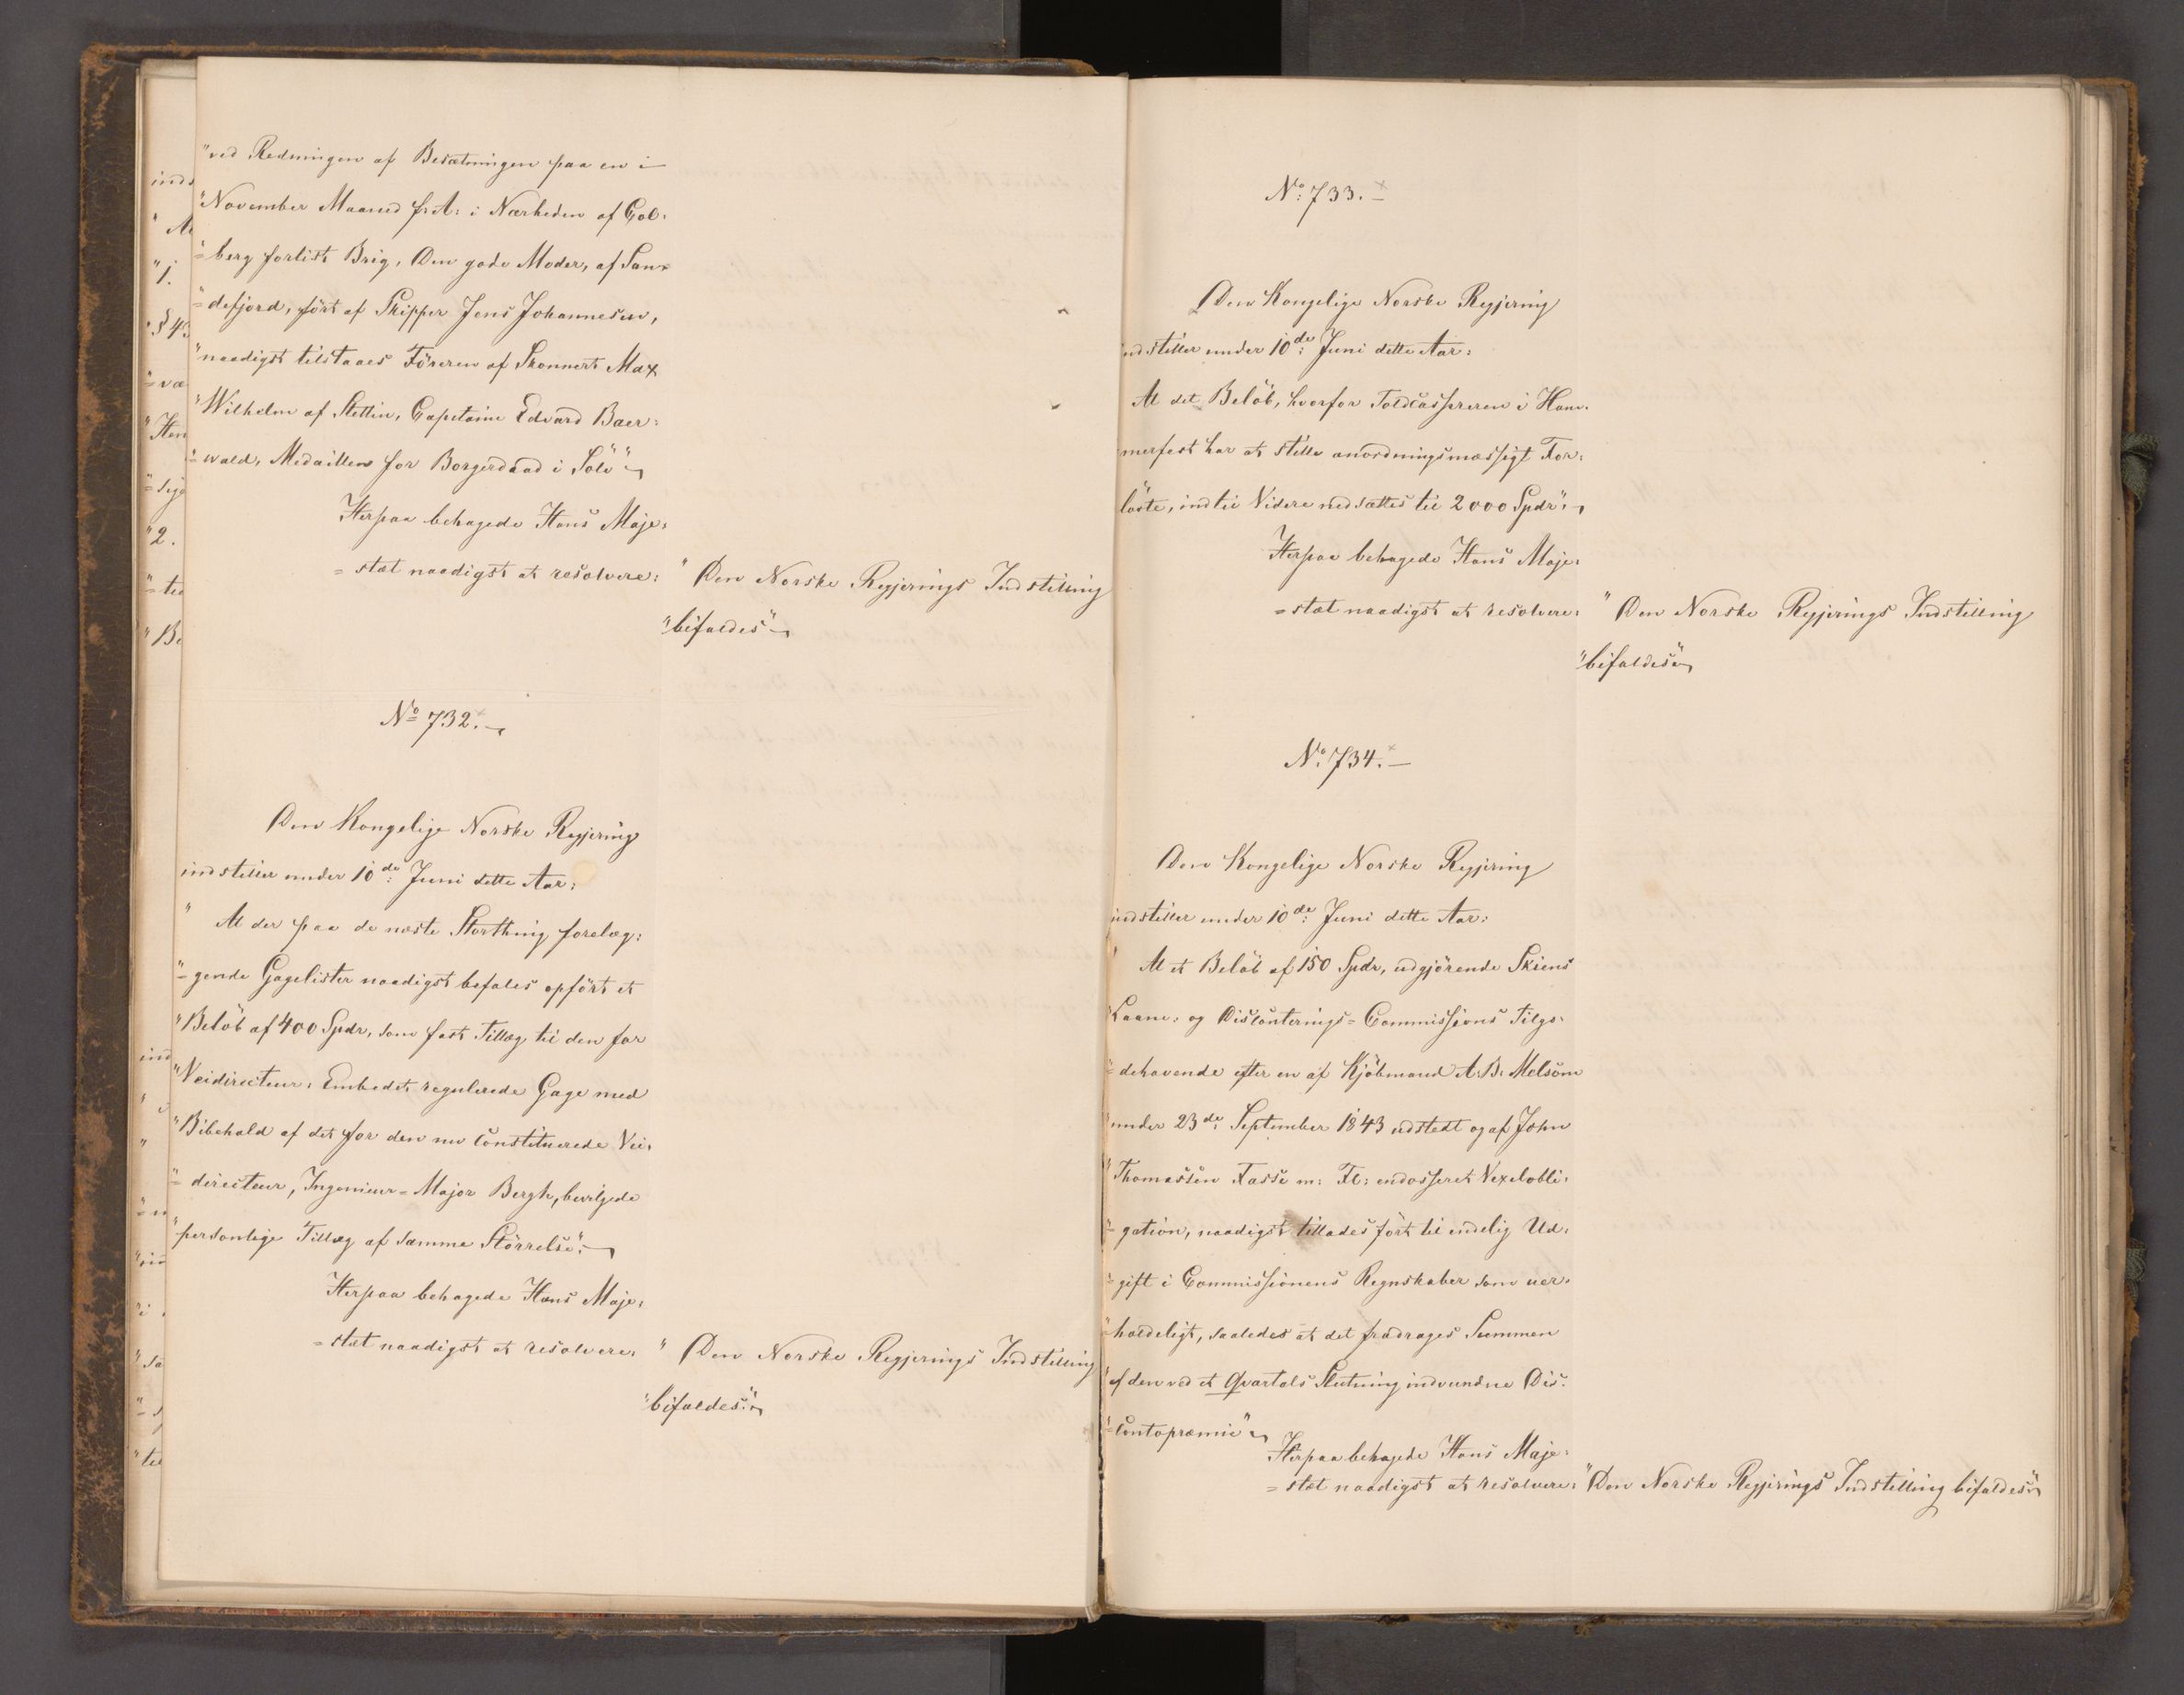 "ved Redningen af Besætningen paa en i
"November Maaned f. A. i Nærheden af Col=
"=berg forlist Brig, Den gode Moder, af San=
"=defjord, ført af Skipper Jens Johannesen,
"naadigst tilstaaes Føreren af Skonnert Max
"Wilhelm af Stettin, Capetaine Edvard Baer=
"=wald, Medaillen for Borgerdaad i Sölv"
Herpaa behagede Hans Maje=
=stæt naadigst at resolvere: "Den Norske Regjerings Indstilling
"bifaldes"
No 732.
Den Kongelige Norske Regjering
indstiller under 10de Juni dette Aar:
" At der paa de næste Storthing forelæg=
"=gende Gagelister naadigst befales opfört et
"Belöb af 400 Spdr, som fast Tillæg til den for
"Veidirecteur=Embedet regulerede Gage med
"Bibehold af det for den nu constituerede Vei=
"=directeur, Ingenieur=Major Bergh, bevilgede
"personlige Tillæg af samme Störrelse".
Herpaa behagede Hans Maje=
=stæt naadigst at resolvere: "Den Norske Regjerings Indstilling
"bifaldes."
No: 733.
Den Kongelige Norske Regjering
indstiller under 10de Juni dette Aar:
At det Belöb, hvorfor Toldcassereren i Ham=
merfest har at stille anordningsmæssigt For=
löfte, indtil Videre nedsættes til 2000 Spdr".
Herpaa behagede Hans Maje=
=stæt naadigst at resolvere: "Den Norske Regjerings Indstilling
"bifaldes"
No: 734.
Den Kongelige Norske Regjering
indstiller under 10de Juni dette Aar:
" At et Belöb af 150 Spdr, udgjörende Skiens
"Laane= og Disconterings=Commissions Tilgo=
"=dehavende efter en af Kjöbmand A. B. Melsom
"under 23de September 1843 udstedt og af John
"Thomassen Fasse m: Fl: endosseret Vexelobli=
"=gation, naadigst tillades fört til endelig Ud=
"=gift i Commissionens Regnskaber som uer=
"holdeligt, saaledes at det fradrages Summen
"af den ved et Qvartals Slutning indvundne Dis=
"=contopræmie"
Herpaa behagede Hans Maje=
=stæt naadigst at resolvere: "Den Norske Regjerings Indstilling bifaldes"